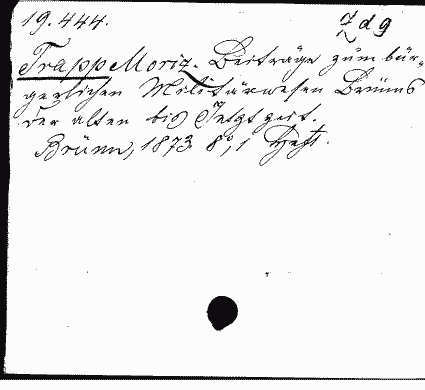 19.444. 7 d 9
Trapp Moriz. Beiträge zum bür-
gerlichen Militärwesen Brünns
der alten bis Jetztzeit.
Brünn, 1873. 8°, 1 Heft.